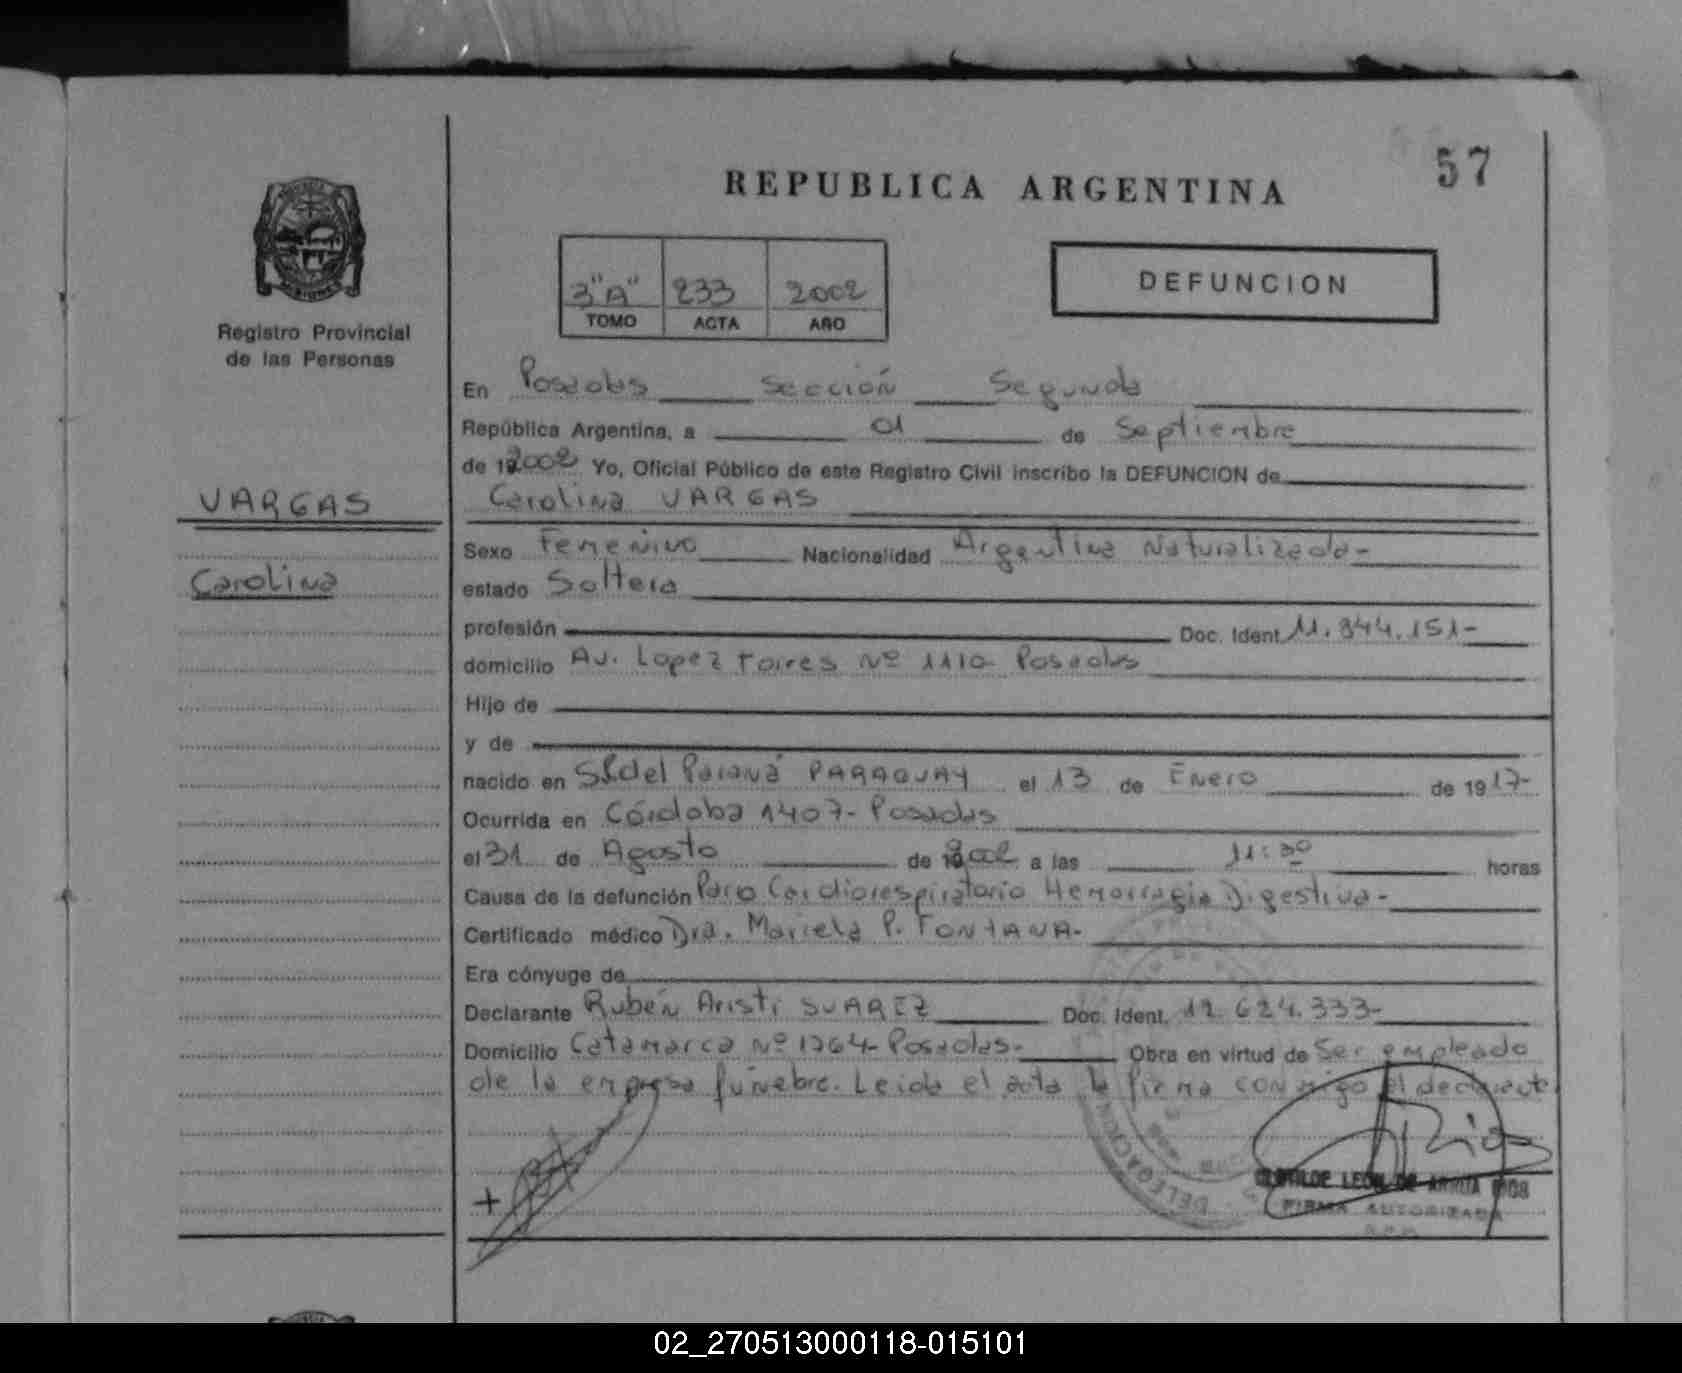 57
REPUBLICA ARGENTINA
3"A" 233 2002
TOMO ACTA AÑO
DEFUNCION
MISIONES
Registro Provincial
de las Personas
VARGAS
Carolina
En Posadas Sección Segunda
República Argentina, a 01 de Septiembre
de 2002 Yo, Oficial Público de este Registro Civil inscribo la DEFUNCION de
Carolina VARGAS
Sexo Femenino Nacionalidad Argentina Naturalizada-
estado Soltera
profesión Doc. Ident. 11.944.151-
domicilio Av. Lopez Torres Nº 1110- Posadas
Hijo de
y de
nacido en del Paraná PARAGUAY el 13 de Enero de 1917-
Ocurrida en Córdoba 1407- Posadas
el 31 de Agosto de 2002 a las 11:30 horas
Causa de la defunción Paro Cardiorespiratorio Hemorragia Digestiva-
Certificado médico Dra. Mariela P. FONTANA-
Era cónyuge de
Declarante Rubén Aristi SUAREZ Doc. Ident. 12.624.333-
Domicilio Catamarca Nº 1764- Posadas- Obra en virtud de Ser empleado
de la empresa fúnebre. Leida el acta la firma conmigo el declarante
+
DELEGACION
CLOTILDE LEON DE ARRUA RIOS
FIRMA AUTORIZADA
02_270513000118-015101